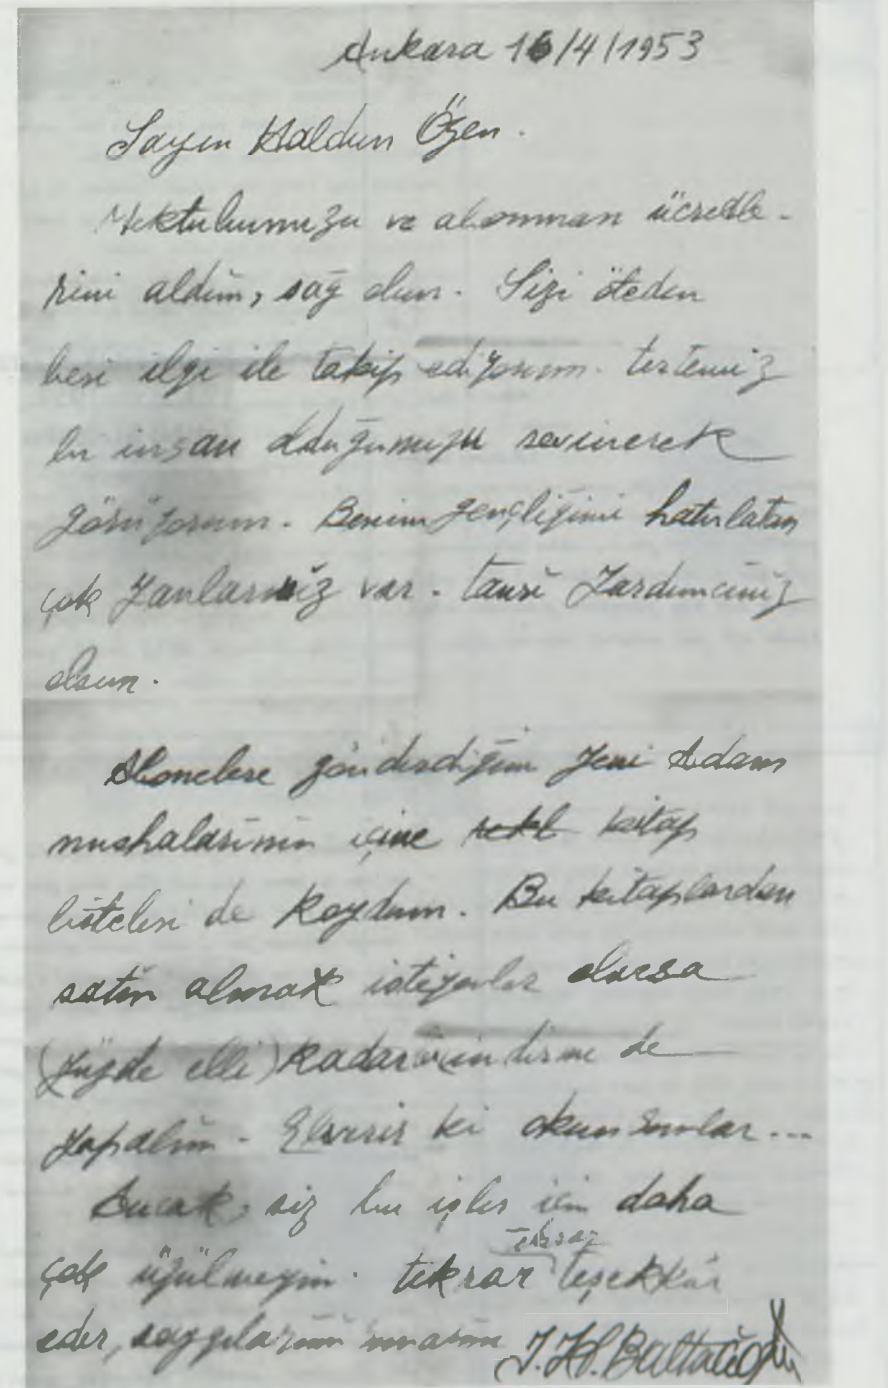 Ankara 16/4/1953
Sayın Haldun Özen.
Mektubunuzu ve abonman ücretle-
rini aldım, sağ olun. Sizi öteden
beri ilgi ile takip ediyorum. tertemiz
bir insan olduğunuzu sevinerek
görüyorum. Benim gençliğimi hatırlatan
çok yanlarınız var. tanrı yardımcınız
olsun.
Abonelere gönderdiğim Yeni Adam
nushalarının içine kitap
listeleri de koydum. Bu kitaplardan
satın almak istiyenler olursa
(yüzde elli) kadar indirme de
yapalım. Elverir ki okunsunlar...
Ancak, siz bu işler için daha
çok üzülmeyin. tekrar tekrar teşekkür
eder, saygılarımı sunarım İ. H. Baltacıoğlu